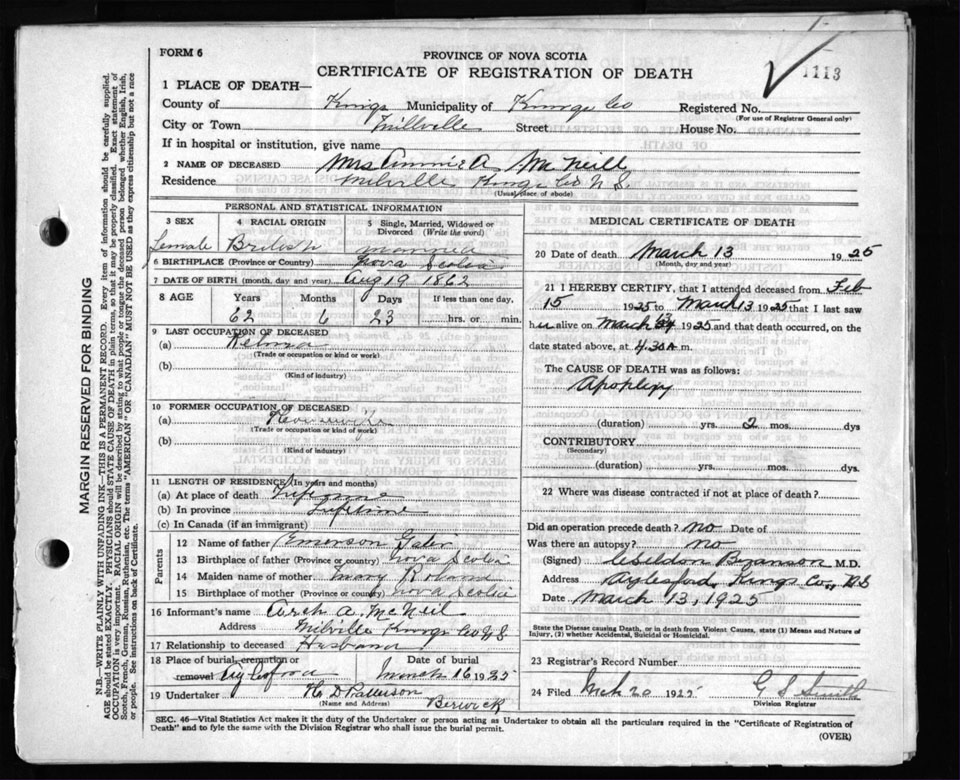 FORM 6
PROVINCE OF NOVA SCOTIA
CERTIFICATE OF REGISTRATION OF DEATH
1113
1 PLACE OF DEATH—
County of Kings Municipality of Kings Co Registered No.
(For use of Registrar General only)
City or Town Millville Street House No.
If in hospital or institution, give name
2 NAME OF DECEASED Mrs Annie A McNeill
Residence Milville Kings Co N S
(Usual place of abode)
PERSONAL AND STATISTICAL INFORMATION
3 SEX 4 RACIAL ORIGIN 5 Single, Married, Widowed or Divorced (Write the word)
Female British married
6 BIRTHPLACE (Province or Country) Nova Scotia
7 DATE OF BIRTH (month, day and year) Aug 19 1862
8 AGE Years Months Days If less than one day,
62 6 23 hrs. or min.
9 LAST OCCUPATION OF DECEASED
(a)
(Trade or occupation or kind of work)
(b)
(Kind of industry)
10 FORMER OCCUPATION OF DECEASED
(a) Housewife
(Trade or occupation or kind of work)
(b)
(Kind of industry)
11 LENGTH OF RESIDENCE (In years and months)
(a) At place of death Lifetime
(b) In province Lifetime
(c) In Canada (if an immigrant)
Parents
12 Name of father Emerson
13 Birthplace of father (Province or country) Nova Scotia
14 Maiden name of mother Mary Roland
15 Birthplace of mother (Province or country) Nova Scotia
16 Informant's name Arch A. McNeil
Address Milville Kings Co N S
17 Relationship to deceased Husband
18 Place of burial, cremation or removal Aylesford Date of burial March 16 1925
19 Undertaker H D Patterson
(Name and Address) Berwick
MEDICAL CERTIFICATE OF DEATH
20 Date of death March 13 1925
(Month, day and year)
21 I HEREBY CERTIFY, that I attended deceased from Feb
15 1925 to March 13 1925 that I last saw
her alive on March 13 1925 and that death occurred, on the
date stated above, at 4.30 A m.
The CAUSE OF DEATH was as follows:
Apoplexy
(duration) yrs. 2 mos. dys
CONTRIBUTORY
(Secondary)
(duration) yrs. mos. dys.
22 Where was disease contracted if not at place of death?
Did an operation precede death? no Date of
Was there an autopsy? no
(Signed) Branson M.D.
Address Aylesford, Kings Co., N.S
Date March 13, 1925
State the Disease causing Death, or in death from Violent Causes, state (1) Means and Nature of
Injury, (2) whether Accidental, Suicidal or Homicidal.
23 Registrar's Record Number
24 Filed Mch 20 1925 G S Smith
Division Registrar
SEC. 46—Vital Statistics Act makes it the duty of the Undertaker or person acting as Undertaker to obtain all the particulars required in the "Certificate of Registration of
Death" and to fyle the same with the Division Registrar who shall issue the burial permit.
(OVER)
MARGIN RESERVED FOR BINDING
N.B.—WRITE PLAINLY WITH UNFADING INK—THIS IS A PERMANENT RECORD. Every item of information should be carefully supplied.
AGE should be stated EXACTLY. PHYSICIANS should STATE CAUSE OF DEATH in plain terms, so that it may be properly classified. Exact statement of
OCCUPATION is very important. RACIAL ORIGIN will be described by stating to what people or tongue the deceased person belonged whether English, Irish,
Scotch, French, German, Russian, Ruthenian, etc. The terms "AMERICAN" OR "CANADIAN" MUST NOT BE USED as they express citizenship but not a race
or people. See instructions on back of Certificate.